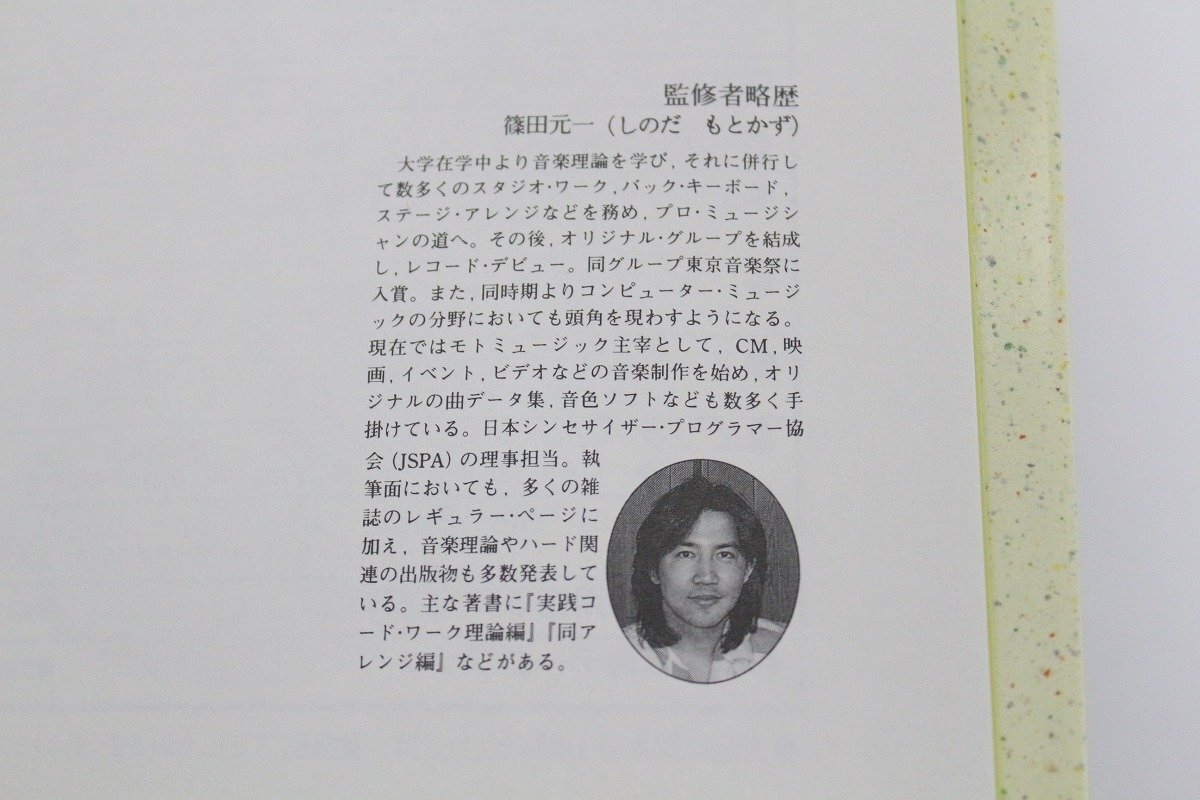 監修者略歴
篠田元一 (しのだ　もとかず)
大学在学中より音楽理論を学び，それに併行し
て数多くのスタジオ・ワーク，バック・キーボード，
ステージ・アレンジなどを務め，プロ・ミュージシ
ャンの道へ。その後，オリジナル・グループを結成
し，レコード・デビュー。同グループ東京音楽祭に
入賞。また，同時期よりコンピューター・ミュージ
ックの分野においても頭角を現わすようになる。
現在ではモトミュージック主宰として，CM，映
画，イベント，ビデオなどの音楽制作を始め，オリ
ジナルの曲データ集，音色ソフトなども数多く手
掛けている。日本シンセサイザー・プログラマー協
会 (JSPA) の理事担当。執
筆面においても，多くの雑
誌のレギュラー・ページに
加え，音楽理論やハード関
連の出版物も多数発表して
いる。主な著書に『実践コ
ード・ワーク理論編』『同ア
レンジ編』などがある。